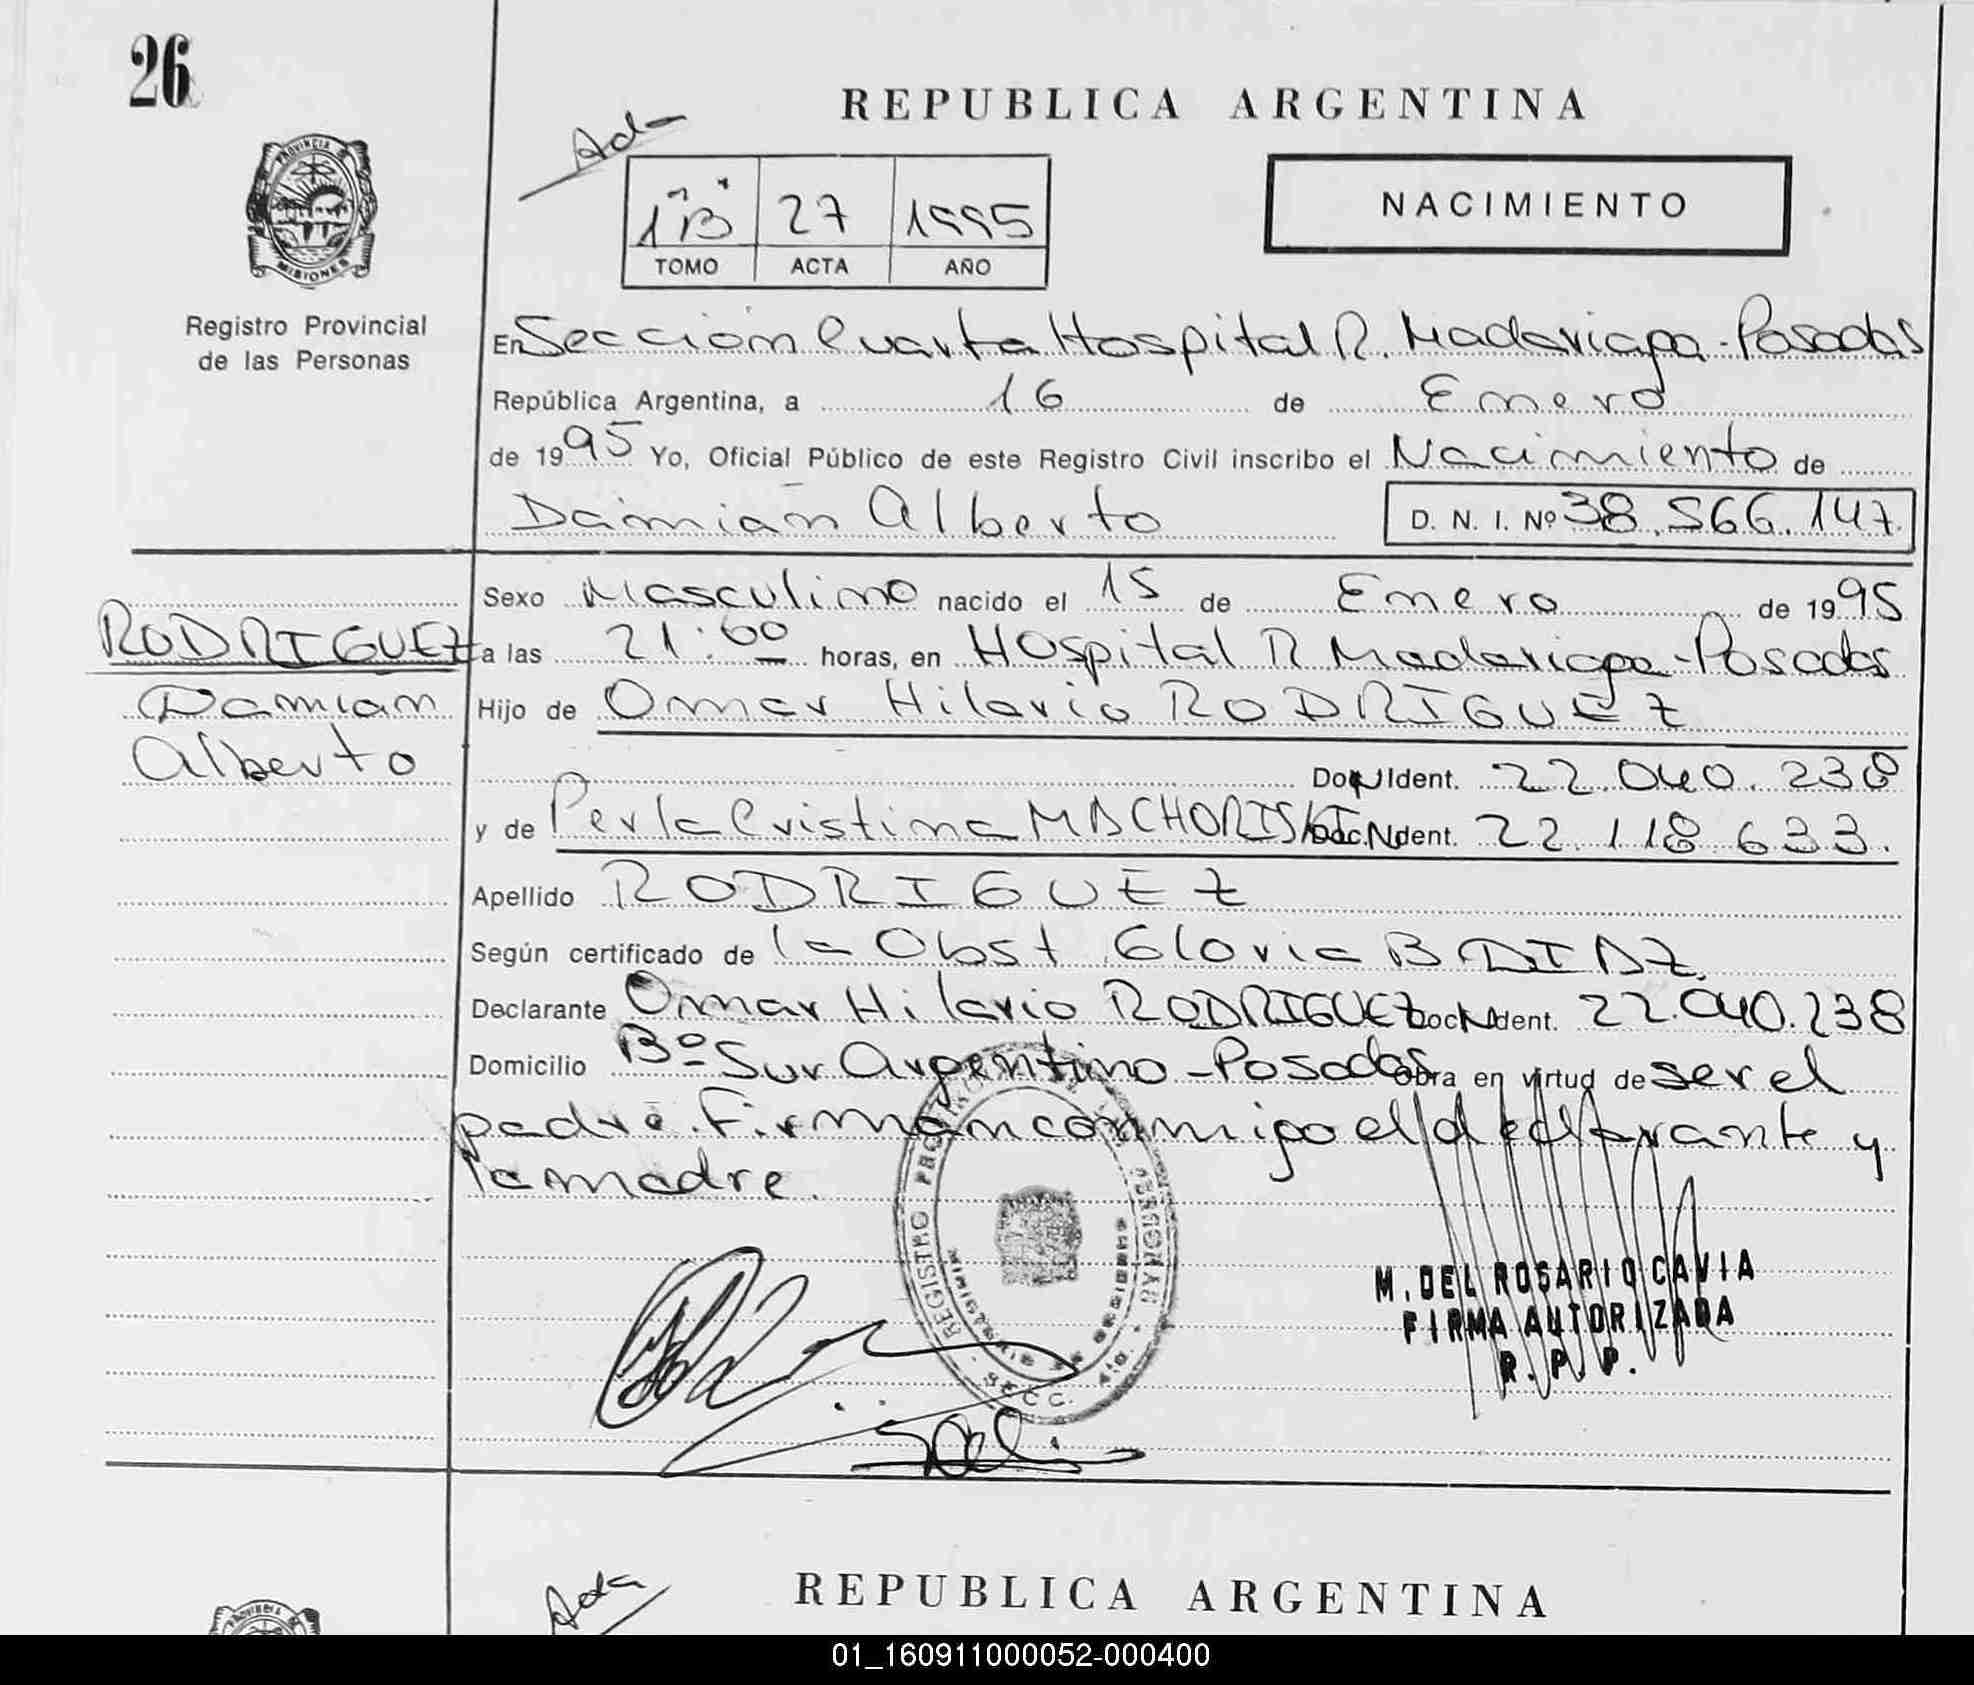 26
REPUBLICA ARGENTINA
Ada
1ª "B" 27 1995
TOMO ACTA AÑO
NACIMIENTO
PROVINCIA DE
MISIONES
Registro Provincial
de las Personas
En Sección Cuarta Hospital R. Madariaga - Posadas
República Argentina, a 16 de Enero
de 1995 Yo, Oficial Público de este Registro Civil inscribo el Nacimiento de
Damián Alberto D. N. I. Nº 38.566.147.
Sexo Masculino nacido el 15 de Enero de 1995
RODRIGUEZ a las 21:00 horas, en Hospital R Madariaga - Posadas
Damian Hijo de Omar Hilario RODRIGUEZ
Alberto
Doc Ident. 22.040.238
y de Perla Cristina MACHORISKI Doc. Ident. 22.118.633.
Apellido RODRIGUEZ
Según certificado de la Obst Gloria B DIAZ.
Declarante Omar Hilario RODRIGUEZ Doc Ident. 22.040.238
Domicilio Bº Sur Argentino - Posadas Obra en virtud de ser el
padre. Firman conmigo el declarante y
la madre.
REGISTRO PROVINCIAL DE LAS PERSONAS
SECC. 4ta.
M. DEL ROSARIO CAVIA
FIRMA AUTORIZADA
R. P. P.
Ada
REPUBLICA ARGENTINA
PROVINCIA DE
01_160911000052-000400